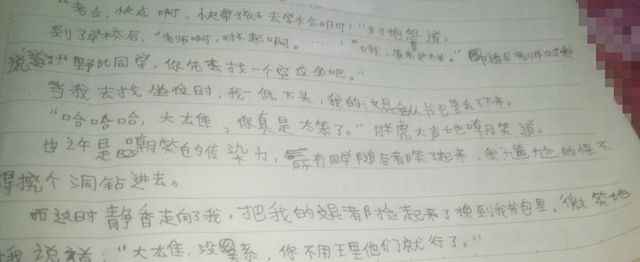 "老公，快点啊，快带孩子去学校啊！"妈妈抱怨道。
到了学校后，"老师啊，对不起啊。……" "没，原来这样。" 随后老师对我
说道："野比同学，你先去找一个空位坐吧。"
当我去找坐位时，我一低下头，我的文具全从书包里丢了下来。
"哈哈哈，大太隹，你真是太笨了。"胖虎大声地嘲笑道。
也许是嘲笑的传染力，所有同学随后都笑了起来，我尴尬的恨不
得挖个洞钻进去。
而这时静香走向了我，把我的文具都捡起来了换到我书包里，微笑地
我说着："大太隹，没关系，你不用理他们就行了。"